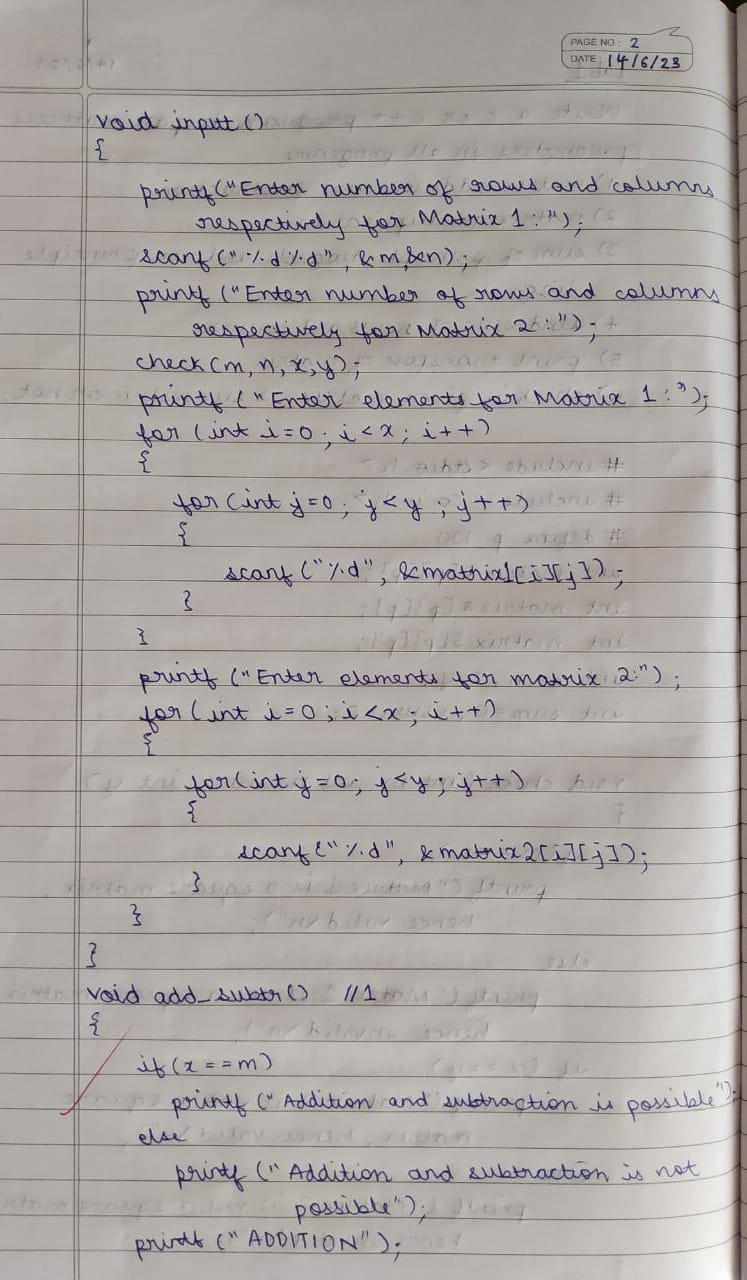 PAGE NO: 2
DATE: 14/6/23
void input()
{
printf("Enter number of rows and columns
respectively for Matrix 1:");
scanf("%d%d", &m,&n);
printf("Enter number of rows and columns
respectively for Matrix 2:");
check(m, n, x,y);
printf("Enter elements for Matrix 1:");
for (int i=0; i<x; i++)
{
for(int j=0; j<y; j++)
{
scanf("%d", &matrix1[i][j]);
}
}
printf("Enter elements for matrix 2:");
for(int i=0; i<x; i++)
{
for(int j=0; j<y; j++)
{
scanf("%d", &matrix2[i][j]);
}
}
}
void add_subtr() //1
{
if(x==m)
printf("Addition and subtraction is possible");
else
printf("Addition and subtraction is not
possible");
printf("ADDITION");